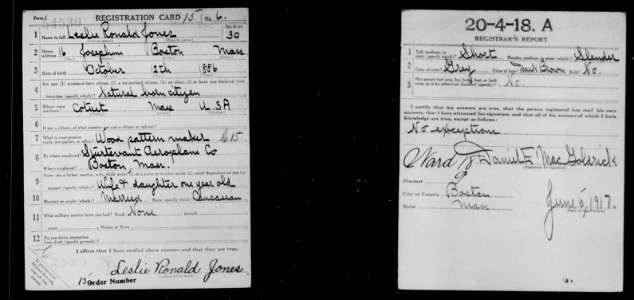 Form 1
REGISTRATION CARD 15 No. 6.
1 Name in full Leslie Ronald Jones Age, in yrs. 30
2 Home address 16 Josephine Boston Mass
3 Date of birth October 12th 1886
4 Are you (1) a natural-born citizen, (2) a naturalized citizen, (3) an alien, (4) or have you declared your intention (specify which)? Natural born citizen
5 Where were you born? Cotuit Mass U.SA
6 If not a citizen, of what country are you a citizen or subject?
7 What is your present trade, occupation, or office? Wood pattern maker 615
8 By whom employed? Sturtevant Aeroplane Co
Where employed? Boston Mass.
9 Have you a father, mother, wife, child under 12, or a sister or brother under 12, solely dependent on you for support (specify which)? Wife & daughter one year old
10 Married or single (which)? Married Race (specify which)? Caucasian
11 What military service have you had? Rank None branch
years Nation or State
12 Do you claim exemption from draft (specify grounds)?
I affirm that I have verified above answers and that they are true.
Leslie Ronald Jones
15 Order Number
20-4-18. A
REGISTRAR'S REPORT
1 Tall, medium, or short (specify which)? Short Slender, medium, or stout (which)? Slender
2 Color of eyes? Grey Color of hair? Dark Brown Bald? No.
3 Has person lost arm, leg, hand, foot, or both No.
I certify that my answers are true, that the person registered has read his own answers, that I have witnessed his signature, and that all of his answers of which I have knowledge are true, except as follows:
No exceptions
Ward 18 Daniel E MacGoldrick
Precinct 9
City or County Boston
State Mass
June 5, 1917.